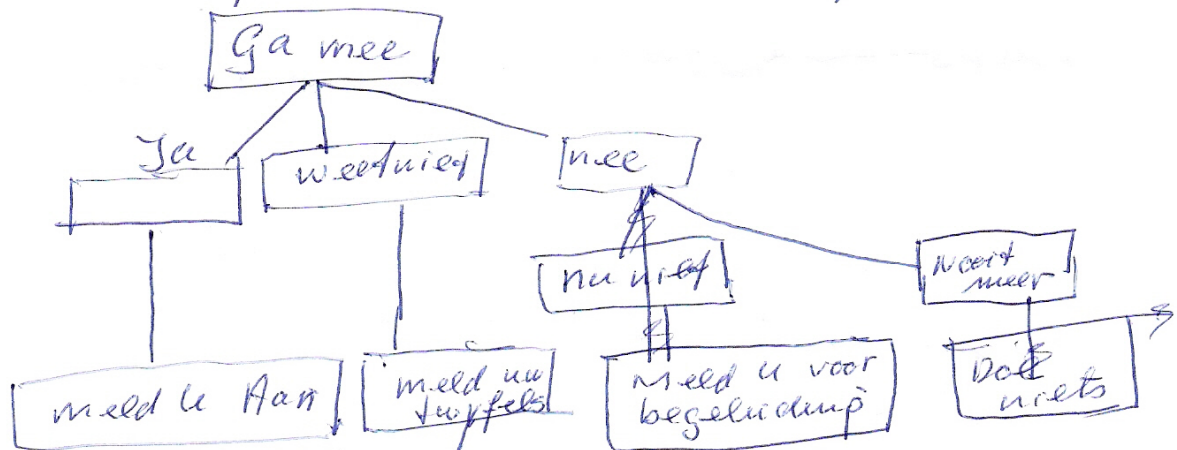 Ga mee
Ja
weetniet
nee
nu niet
Nooit
meer
meld u Aan
meld uw
twyfels
Meld u voor
begeleiding
Doe
niets